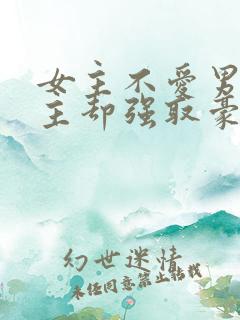 女主不爱男
主却强取豪
幻世迷情
未经同意禁止转载